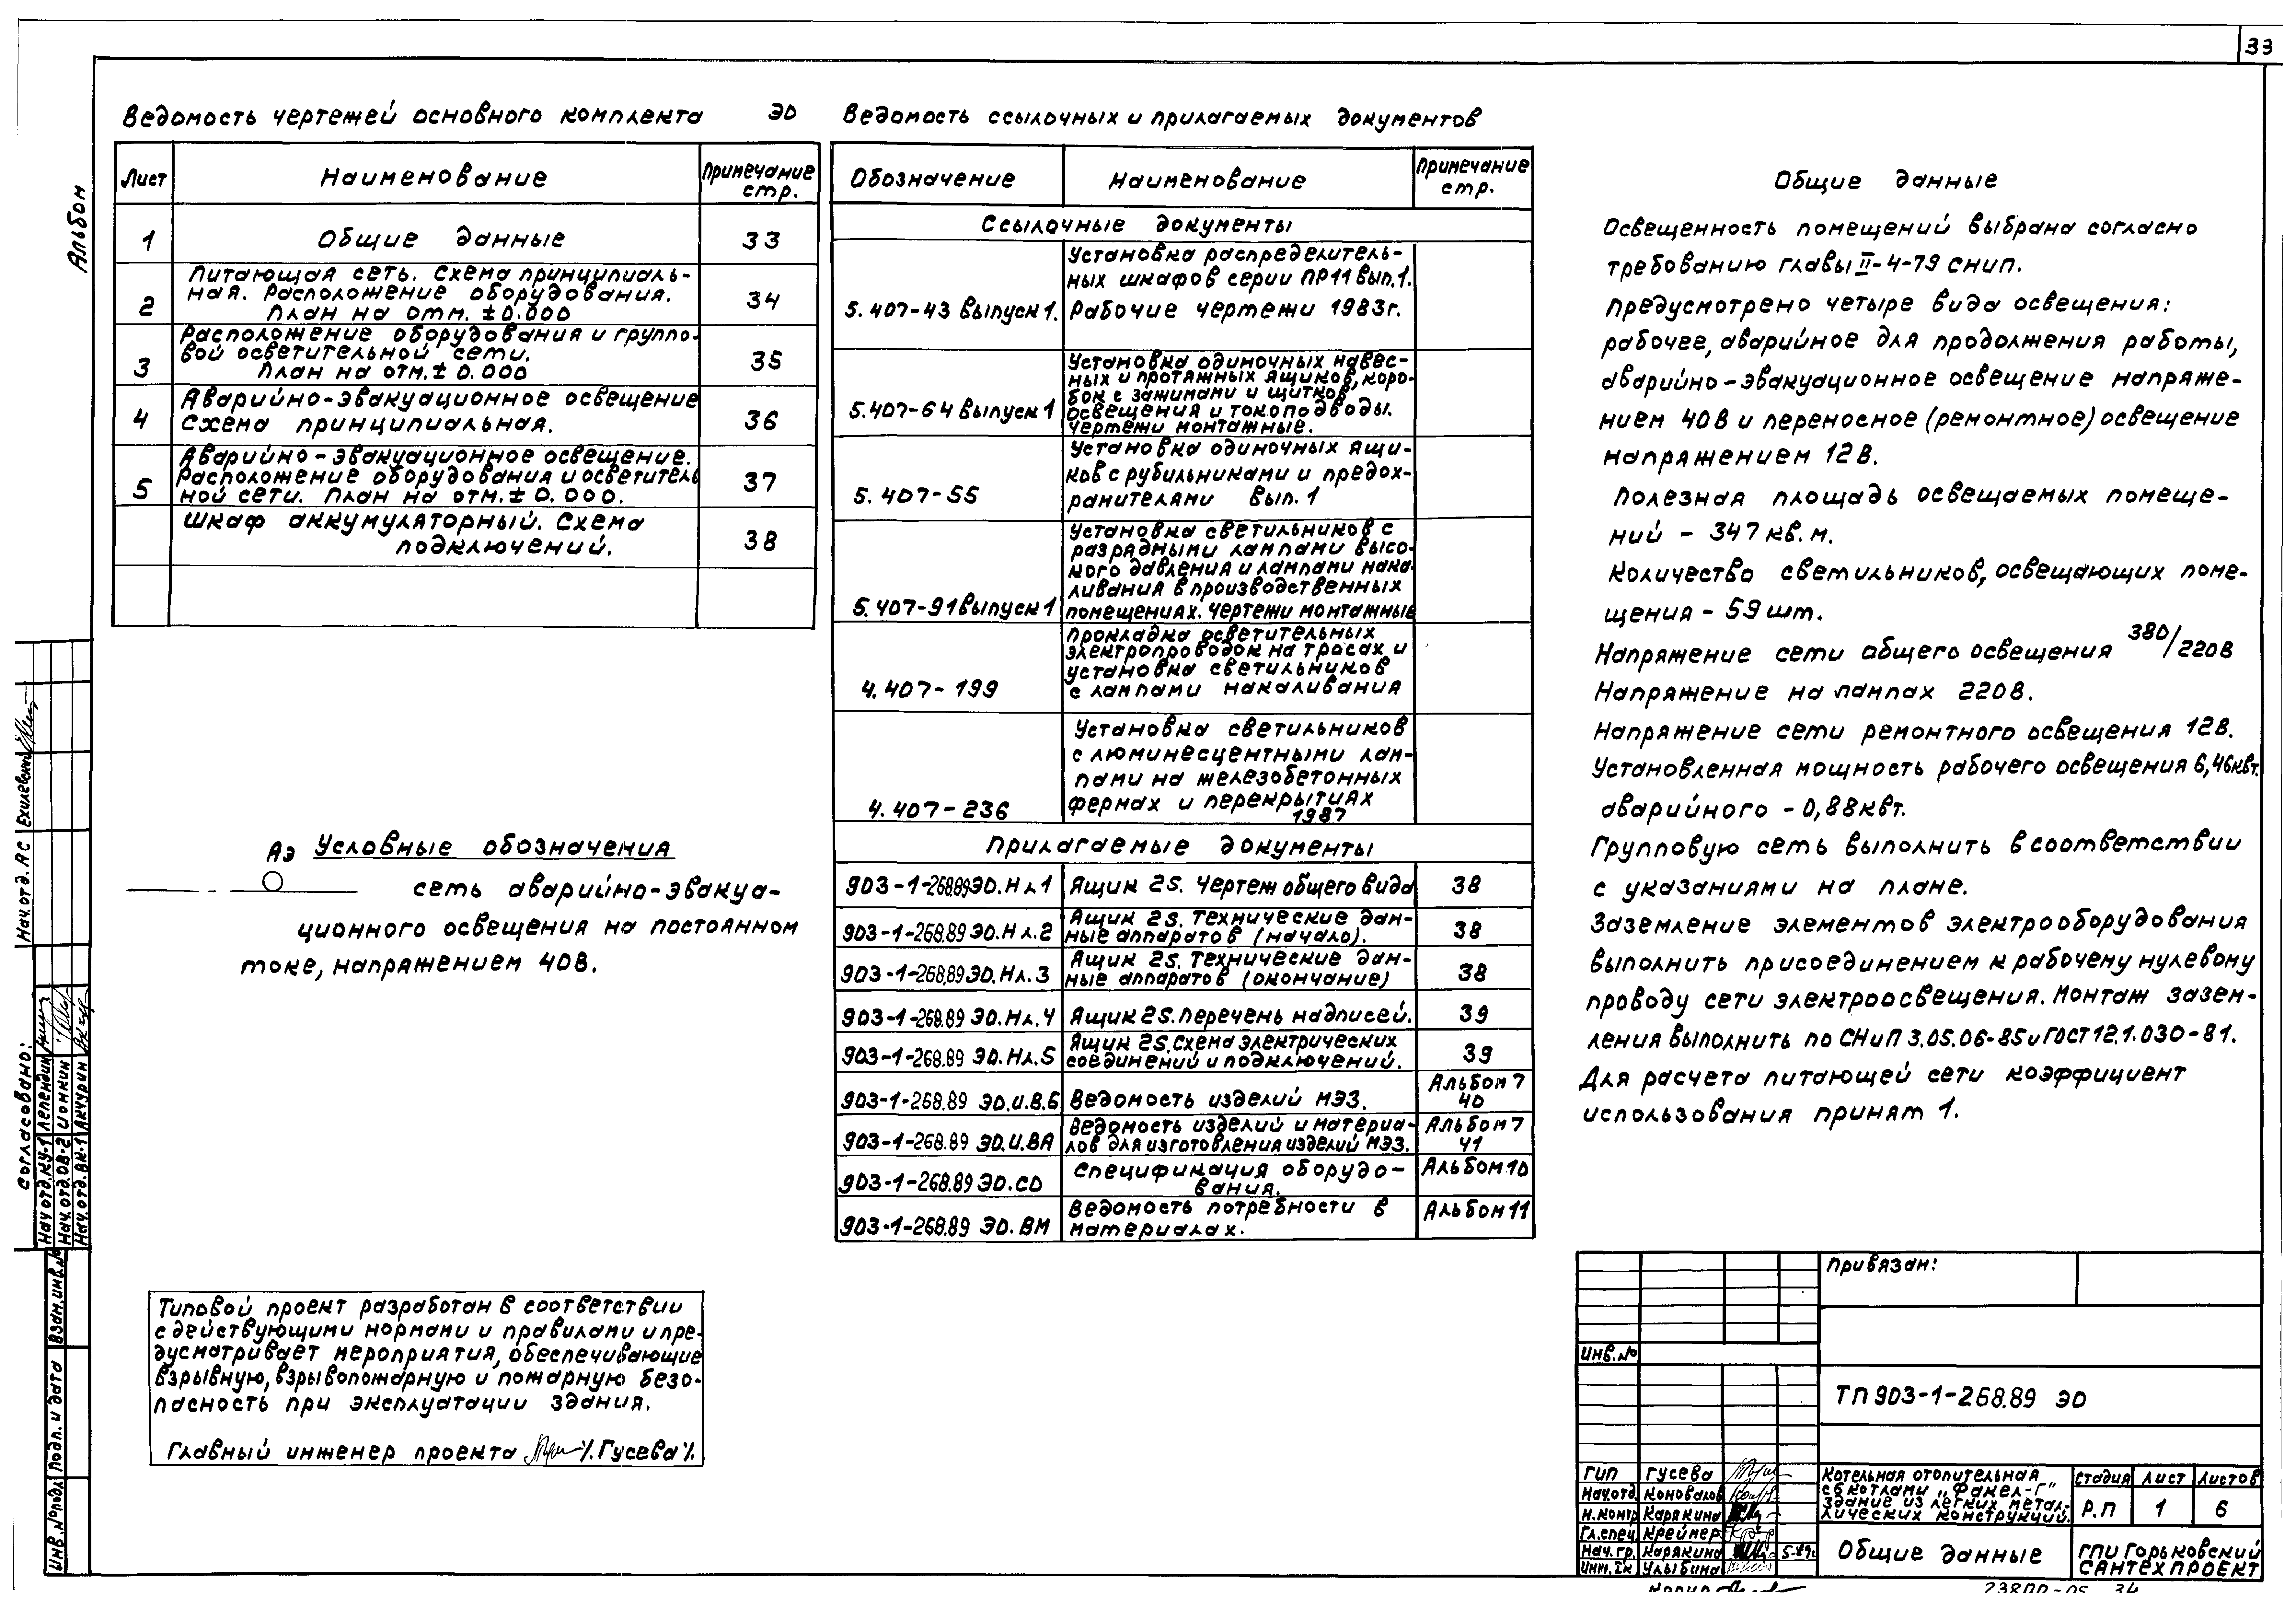 33
Альбом
Ведомость чертежей основного комплекта ЭО
Лист Наименование Примечание стр.
1 Общие данные 33
2 Питающая сеть. Схема принципиаль-
ная. Расположение оборудования.
План на отм. ±0.000 34
3 Расположение оборудования и группо-
вой осветительной сети.
План на отм. ± 0.000 35
4 Аварийно-эвакуационное освещение
Схема принципиальная. 36
5 Аварийно-эвакуационное освещение.
Расположение оборудования и осветитель
ной сети. План на отм. ± 0.000. 37
Шкаф аккумуляторный. Схема
подключений. 38
Аэ Условные обозначения
сеть аварийно-эвакуа-
ционного освещения на постоянном
токе, напряжением 40В.
Типовой проект разработан в соответствии
с действующими нормами и правилами и пре-
дусматривает мероприятия, обеспечивающие
взрывную, взрывопожарную и пожарную безо-
пасность при эксплуатации здания.
Главный инженер проекта /Гусева/.
Ведомость ссылочных и прилагаемых документов
Обозначение Наименование Примечание стр.
Ссылочные документы
5.407-43 выпуск 1. Установка распределитель-
ных шкафов серии ПР11 вып.1.
Рабочие чертежи 1983г.
5.407-64 выпуск 1 Установка одиночных навес-
ных и протяжных ящиков, коро-
бок с зажимами и щитков
освещения и токоподводы.
Чертежи монтажные.
5.407-55 Установка одиночных ящи-
ков с рубильниками и предох-
ранителями вып. 1
5.407-91 выпуск 1 Установка светильников с
разрядными лампами высо-
кого давления и лампами нака-
ливания в производственных
помещениях. Чертежи монтажные
4.407-199 Прокладка осветительных
электропроводок на трасах и
установка светильников
с лампами накаливания
4.407-236 Установка светильников
с люминесцентными лам-
пами на железобетонных
фермах и перекрытиях
1987
Прилагаемые документы
903-1-268.89 ЭО.Нл.1 Ящик 2s. Чертеж общего вида 38
903-1-268.89 ЭО.Нл.2 Ящик 2s. Технические дан-
ные аппаратов (начало). 38
903-1-268.89 ЭО.Нл.3 Ящик 2s. Технические дан-
ные аппаратов (окончание) 38
903-1-268.89 ЭО.Нл.4 Ящик 2s. Перечень надписей. 39
903-1-268.89 ЭО.Нл.5 Ящик 2s. Схема электрических
соединений и подключений. 39
903-1-268.89 ЭО.И.В.Б Ведомость изделий МЭЗ. Альбом 7
40
903-1-268.89 ЭО.И.ВА Ведомость изделий и материа-
лов для изготовления изделий МЭЗ. Альбом 7
41
903-1-268.89 ЭО.СО Спецификация оборудо-
вания. Альбом 10
903-1-268.89 ЭО.ВМ Ведомость потребности в
материалах. Альбом 11
Общие данные
Освещенность помещений выбрана согласно
требованию главы II-4-79 СНиП.
Предусмотрено четыре вида освещения:
рабочее, аварийное для продолжения работы,
аварийно-эвакуационное освещение напряже-
нием 40В и переносное (ремонтное) освещение
напряжением 12В.
Полезная площадь освещаемых помеще-
ний - 347 кв.м.
Количество светильников, освещающих поме-
щения - 59 шт.
Напряжение сети общего освещения 380/220В
Напряжение на лампах 220В.
Напряжение сети ремонтного освещения 12В.
Установленная мощность рабочего освещения 6,46квт.
аварийного - 0,88квт.
Групповую сеть выполнить в соответствии
с указаниями на плане.
Заземление элементов электрооборудования
выполнить присоединением к рабочему нулевому
проводу сети электроосвещения. Монтаж зазем-
ления выполнить по СНиП 3.05.06-85 и ГОСТ 12.1.030-81.
Для расчета питающей сети коэффициент
использования принят 1.
Согласовано:
Нач.отд. АС Ехилевский
Нач.отд. КУ-1 Лепендин
Нач.отд. ОВ-2 Ионкин
Нач.отд. ВК-1 Акчурин
Взам.инв.№
Подп. и дата
Инв.№ подл
Привязан:
Инв.№
ТП 903-1-268.89 ЭО
ГИП Гусева
Нач.отд. Коновалов
Н.контр Карякина
Гл.спец. Крейнер
Нач.гр. Карякина 5-89г
Инж.Iк Улыбина
Котельная отопительная
с 6 котлами „Факел-Г"
здание из легких метал-
лических конструкций.
Стадия Лист Листов
Р.П 1 6
Общие данные
ГПИ Горьковский
САНТЕХПРОЕКТ